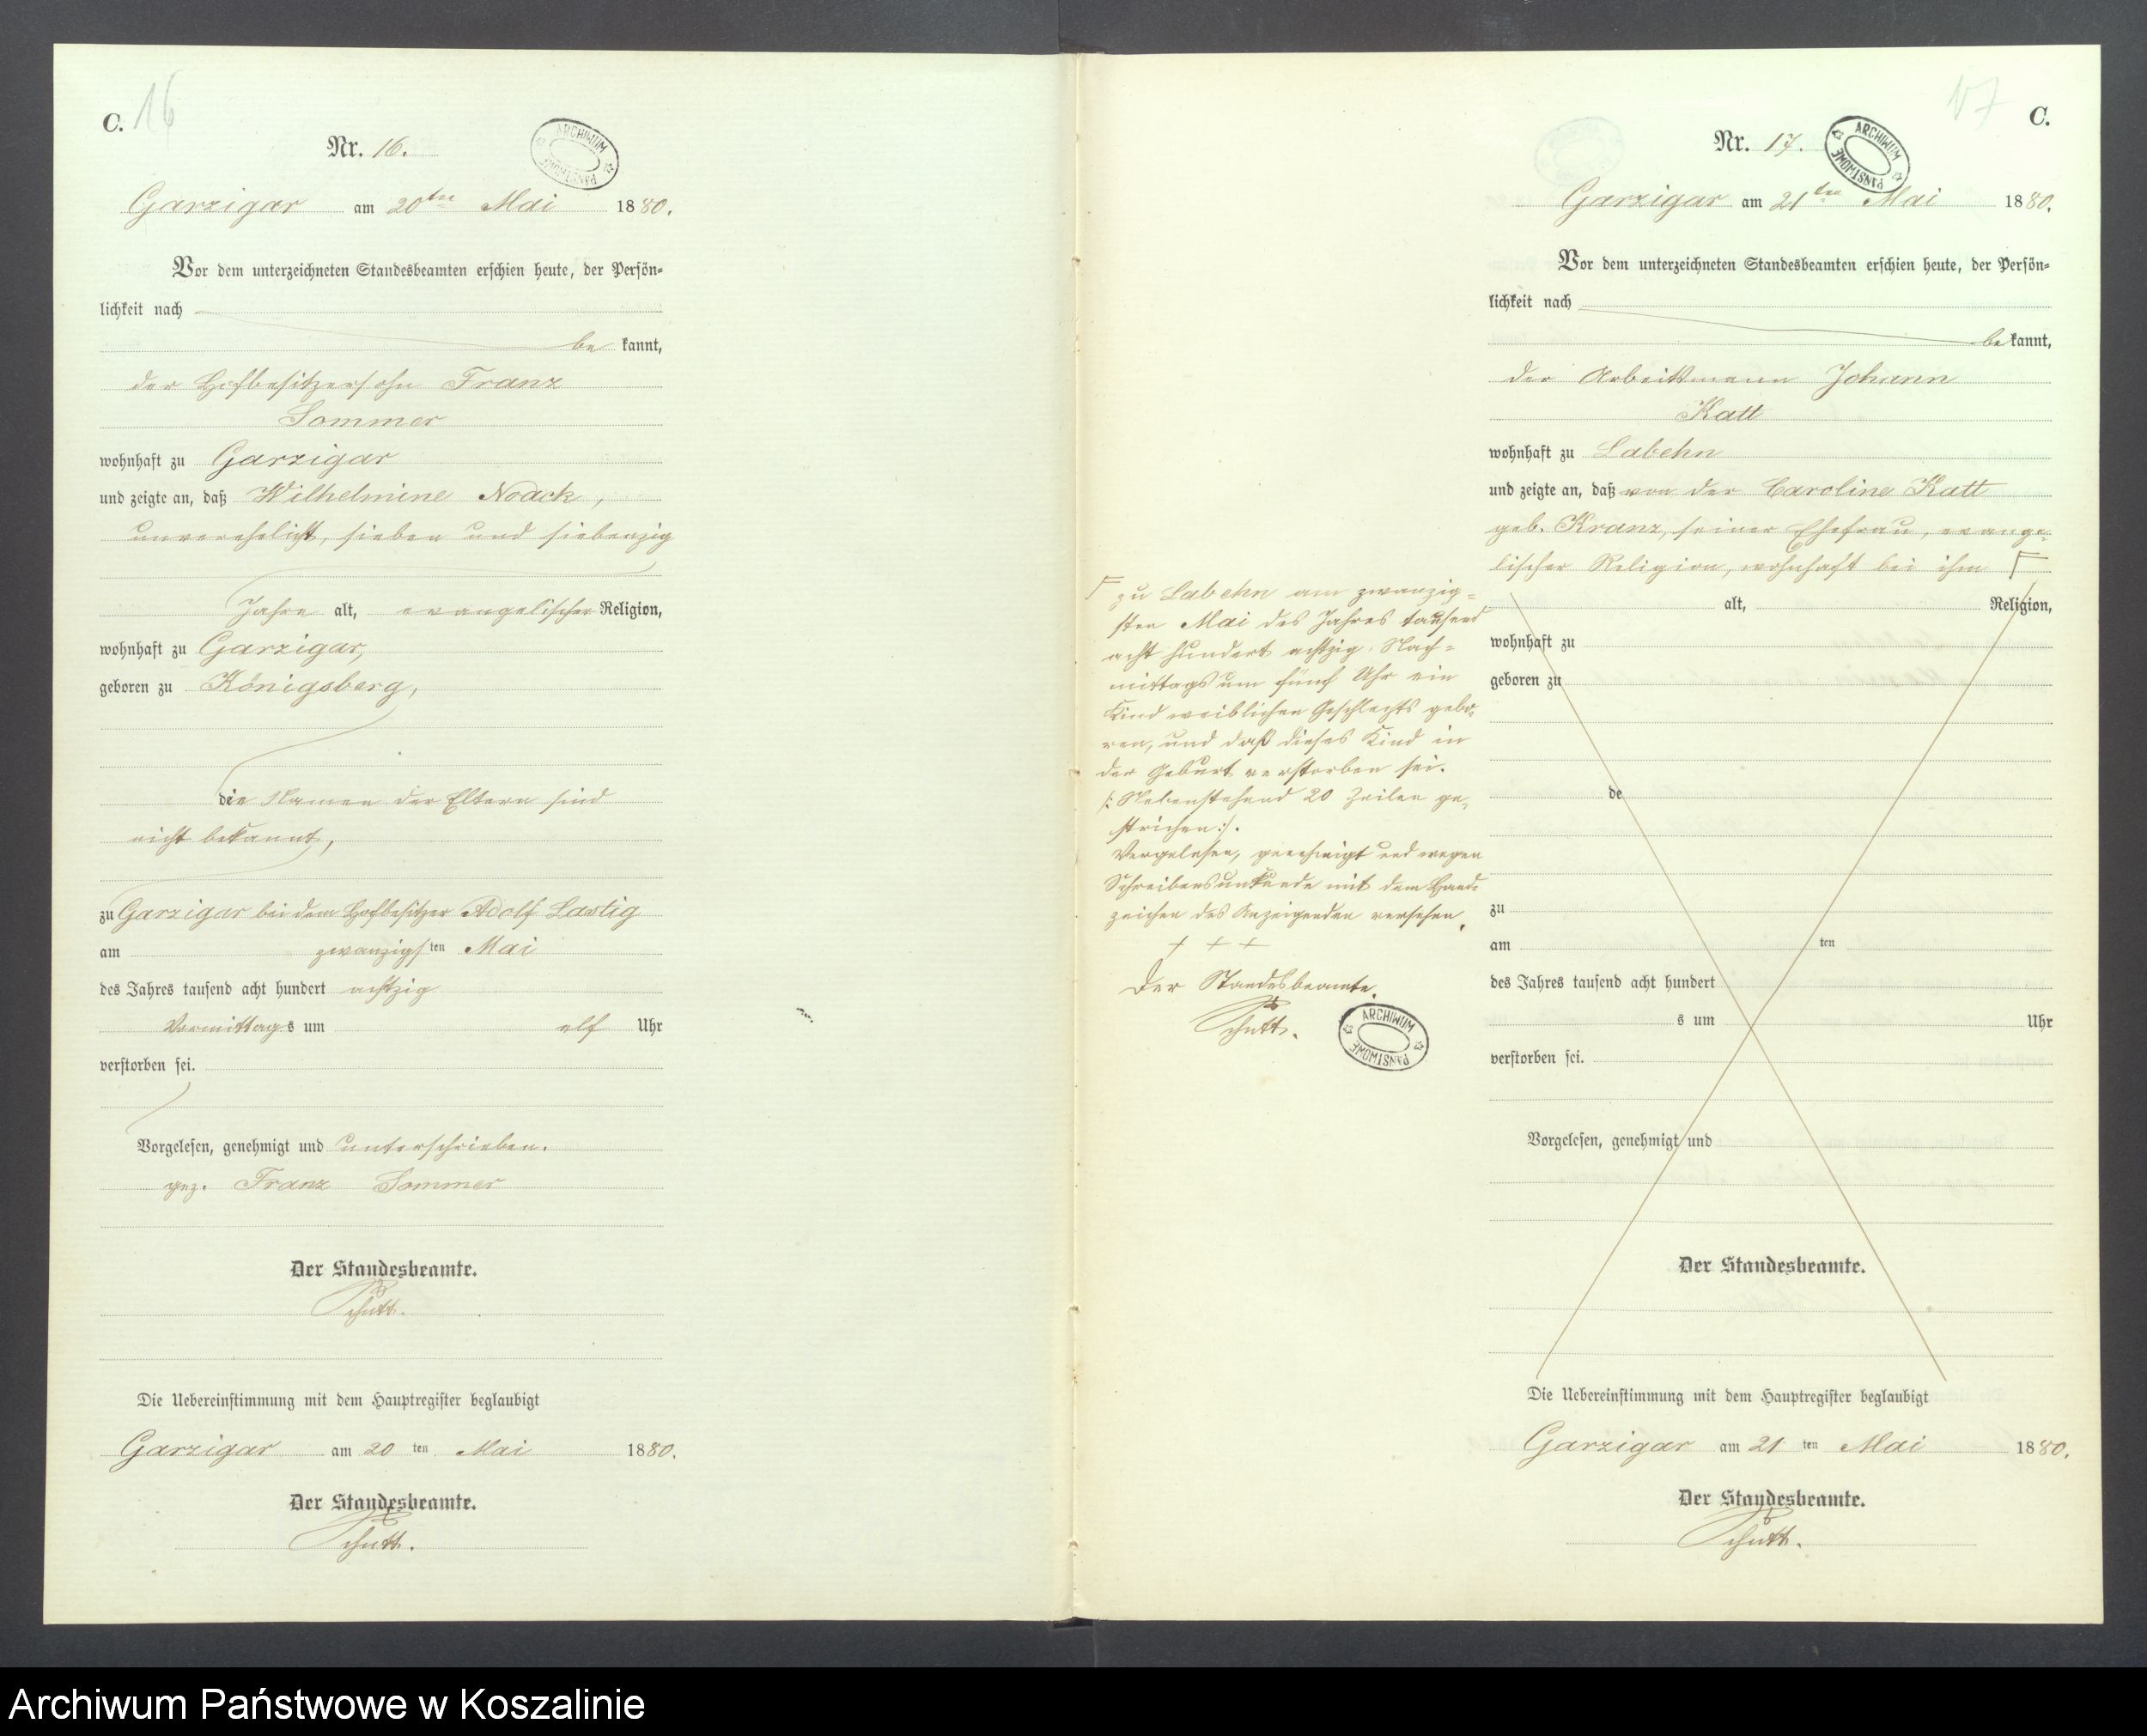 C. 16
Nr. 16.
ARCHIWUM PAŃSTWOWE
Garzigar am 20ten Mai 1880.
Vor dem unterzeichneten Standesbeamten erschien heute, der Persön-
lichkeit nach
be kannt,
der Hofbesitzersohn Franz
Sommer
wohnhaft zu Garzigar
und zeigte an, daß Wilhelmine Noack,
unverehelicht, sieben und siebenzig
Jahre alt, evangelischer Religion,
wohnhaft zu Garzigar,
geboren zu Königsberg,
die Namen der Eltern sind
nicht bekannt,
zu Garzigar bei dem Hofbesitzer Adolf Lastig
am zwanzigsten Mai
des Jahres tausend acht hundert achtzig
Vormittags um elf Uhr
verstorben sei.
Vorgelesen, genehmigt und unterschrieben.
gez. Franz Sommer
Der Standesbeamte.
Schutt.
Die Uebereinstimmung mit dem Hauptregister beglaubigt
Garzigar am 20 ten Mai 1880.
Der Standesbeamte.
Schutt.
17 C.
Nr. 17.
ARCHIWUM PAŃSTWOWE
Garzigar am 21ten Mai 1880.
Vor dem unterzeichneten Standesbeamten erschien heute, der Persön-
lichkeit nach
be kannt,
der Arbeitsmann Johann
Katt
wohnhaft zu Labehn
und zeigte an, daß von der Caroline Katt
geb. Kranz, seiner Ehefrau, evange-
lischer Religion, wohnhaft bei ihm
zu Labehn am zwanzig-
sten Mai des Jahres tausend
acht hundert achtzig Nach-
mittags um fünf Uhr ein
Kind weiblichen Geschlechts gebo-
ren, und daß dieses Kind in
der Geburt verstorben sei.
/: Nebenstehend 20 Zeilen ge-
strichen :/.
Vorgelesen, genehmigt und wegen
Schreibensunkunde mit dem Hand-
zeichen des Anzeigenden versehen.
+ + +
Der Standesbeamte.
Schutt.
ARCHIWUM PAŃSTWOWE
alt, Religion,
wohnhaft zu
geboren zu
de
zu
am ten
des Jahres tausend acht hundert
s um Uhr
verstorben sei.
Vorgelesen, genehmigt und
Der Standesbeamte.
Die Uebereinstimmung mit dem Hauptregister beglaubigt
Garzigar am 21 ten Mai 1880.
Der Standesbeamte.
Schutt.
Archiwum Państwowe w Koszalinie